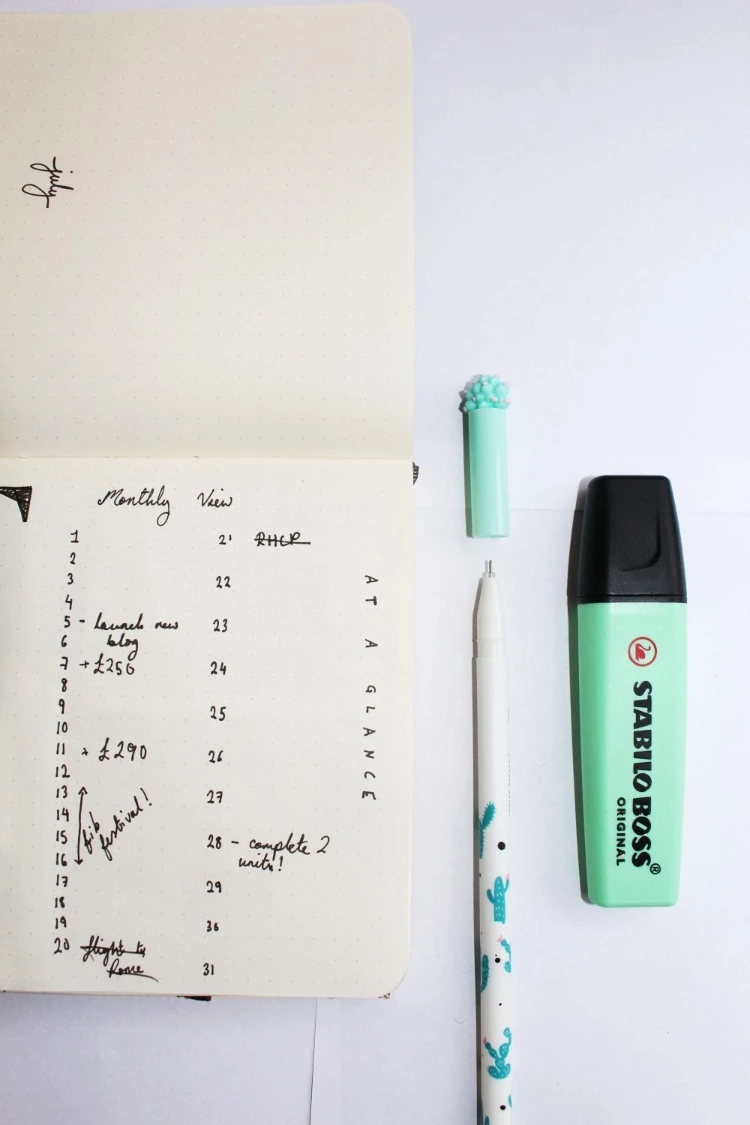 july
Monthly View
1
2
3
4
5 - launch new
6 blog
7 + £256
8
9
10
11 + £290
12
13
14
15
16
fib
festival!
17
18
19
20 flight to
Rome
21 RHCP
22
23
24
25
26
27
28 - complete 2
units!
29
30
31
AT A GLANCE
STABILO BOSS®
ORIGINAL